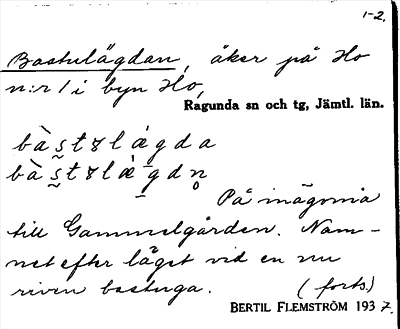 1-2.
Bastulägdan, åker på Ho
n:r 1 i byn Ho,
Ragunda sn och tg, Jämtl. län.
bàs̬tʊlágda
bàs̬tʊlágdn̥
På inägorna
till Gammelgården. Nam-
net efter läget vid en nu
riven bastuga. (forts.)
BERTIL FLEMSTRÖM 1937.